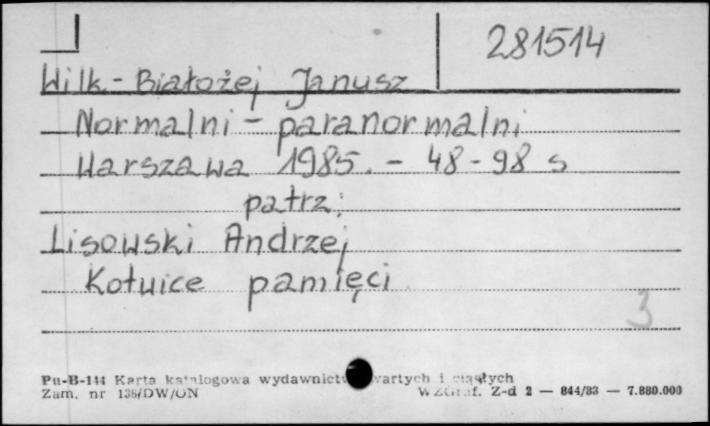 281514
Wilk-Białożej Janusz
Normalni - paranormalni
Warszawa 1985. - 48-98 s
patrz:
Lisowski Andrzej
Kotwice pamięci
3
Pu-B-144 Karta katalogowa wydawnictw zwartych i ciągłych
Zam. nr 136/DW/ON WZGraf. Z-d 2 — 844/83 — 7.880.000